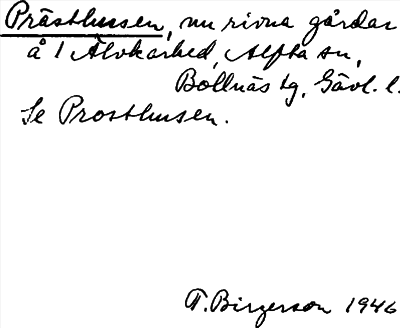 Prästhusen, nu rivna gårdar
å 1 Älvkarhed, Alfta sn,
Bollnäs tg, Gävl. l.
Se Prosthusen.
T. Birgerson 1946